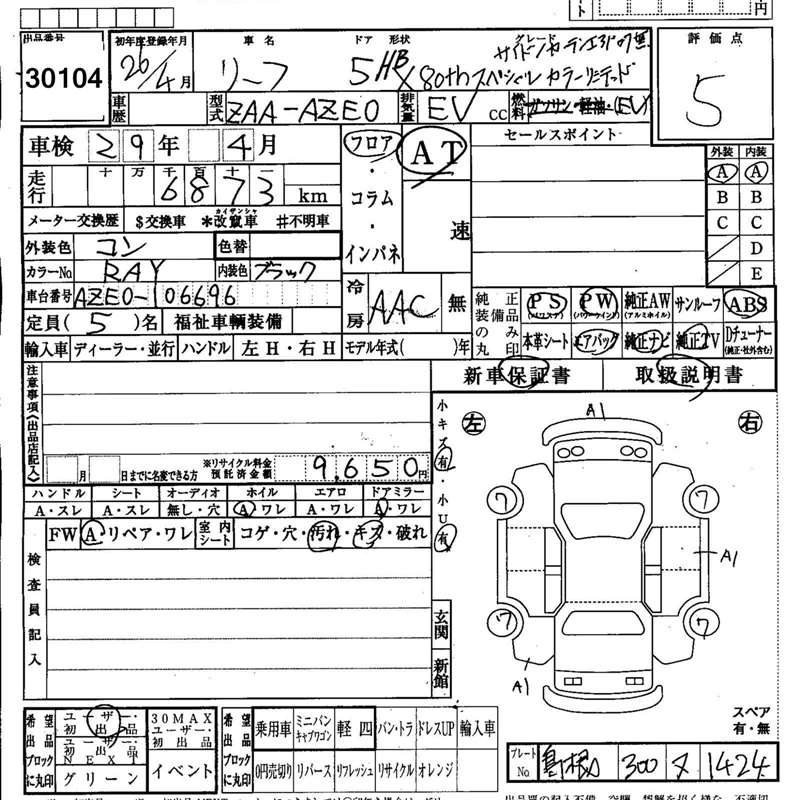 ト 円
出品番号 30104
初年度登録年月 26/4月
車名 リーフ
ドア 形状 5HB
グレード
サイドシカーテンエアバッグ無
80thスペシャルカラーリミテッド
評価点 5
車歴
型式 ZAA-AZE0
排気量 EV CC
燃料 ガソリン・軽油・(EV)
車検 29年 4月
フロア・コラム・インパネ
AT
速
セールスポイント
外装 内装
A A
B B
C C
D
E
走行 十 万 千 百 十 一
6873 km
メーター交換歴 $交換車 *改竄車 #不明車
カイザンシャ
外装色 コン 色替
カラーNo RAY 内装色 ブラック
車台番号 AZE0-106696
冷房 AAC 無
純正装備品の み 丸印
PS (パワステ) PW (パワーウインド) 純正AW (アルミホイル) サンルーフ ABS
本革シート エアバッグ 純正ナビ 純正TV Dチューナー (純正・社外含む)
定員(5)名 福祉車輌装備
輸入車 ディーラー・並行 ハンドル 左H・右H モデル年式( )年
新車保証書 取扱説明書
注意事項(出品店記入)
月 日までに名変できる方
※リサイクル料金 預託済金額 9,650円
小キズ有・小U有
左 右
A1
ハンドル シート オーディオ ホイル エアロ ドアミラー
A・スレ A・スレ 無し・穴 A・ワレ A・ワレ A・ワレ
FW A・リペア・ワレ 室内シート コゲ・穴・汚れ・キズ・破れ
7 7
A1
7 7
A1
検査員記入
玄関
新館
スペア
有・無
希望出品ブロックに丸印
ユーザー・初出品
ユーザー・初出品 NEXT
グリーン
30MAX
ユーザー・初出品
イベント
希望出品ブロックに丸印
乗用車 ミニバンキャブワゴン 軽四 バン・トラ ドレスUP 輸入車
0円売切り リバース リフレッシュ リサイクル オレンジ
プレートNo 島根 300 ヌ 1424